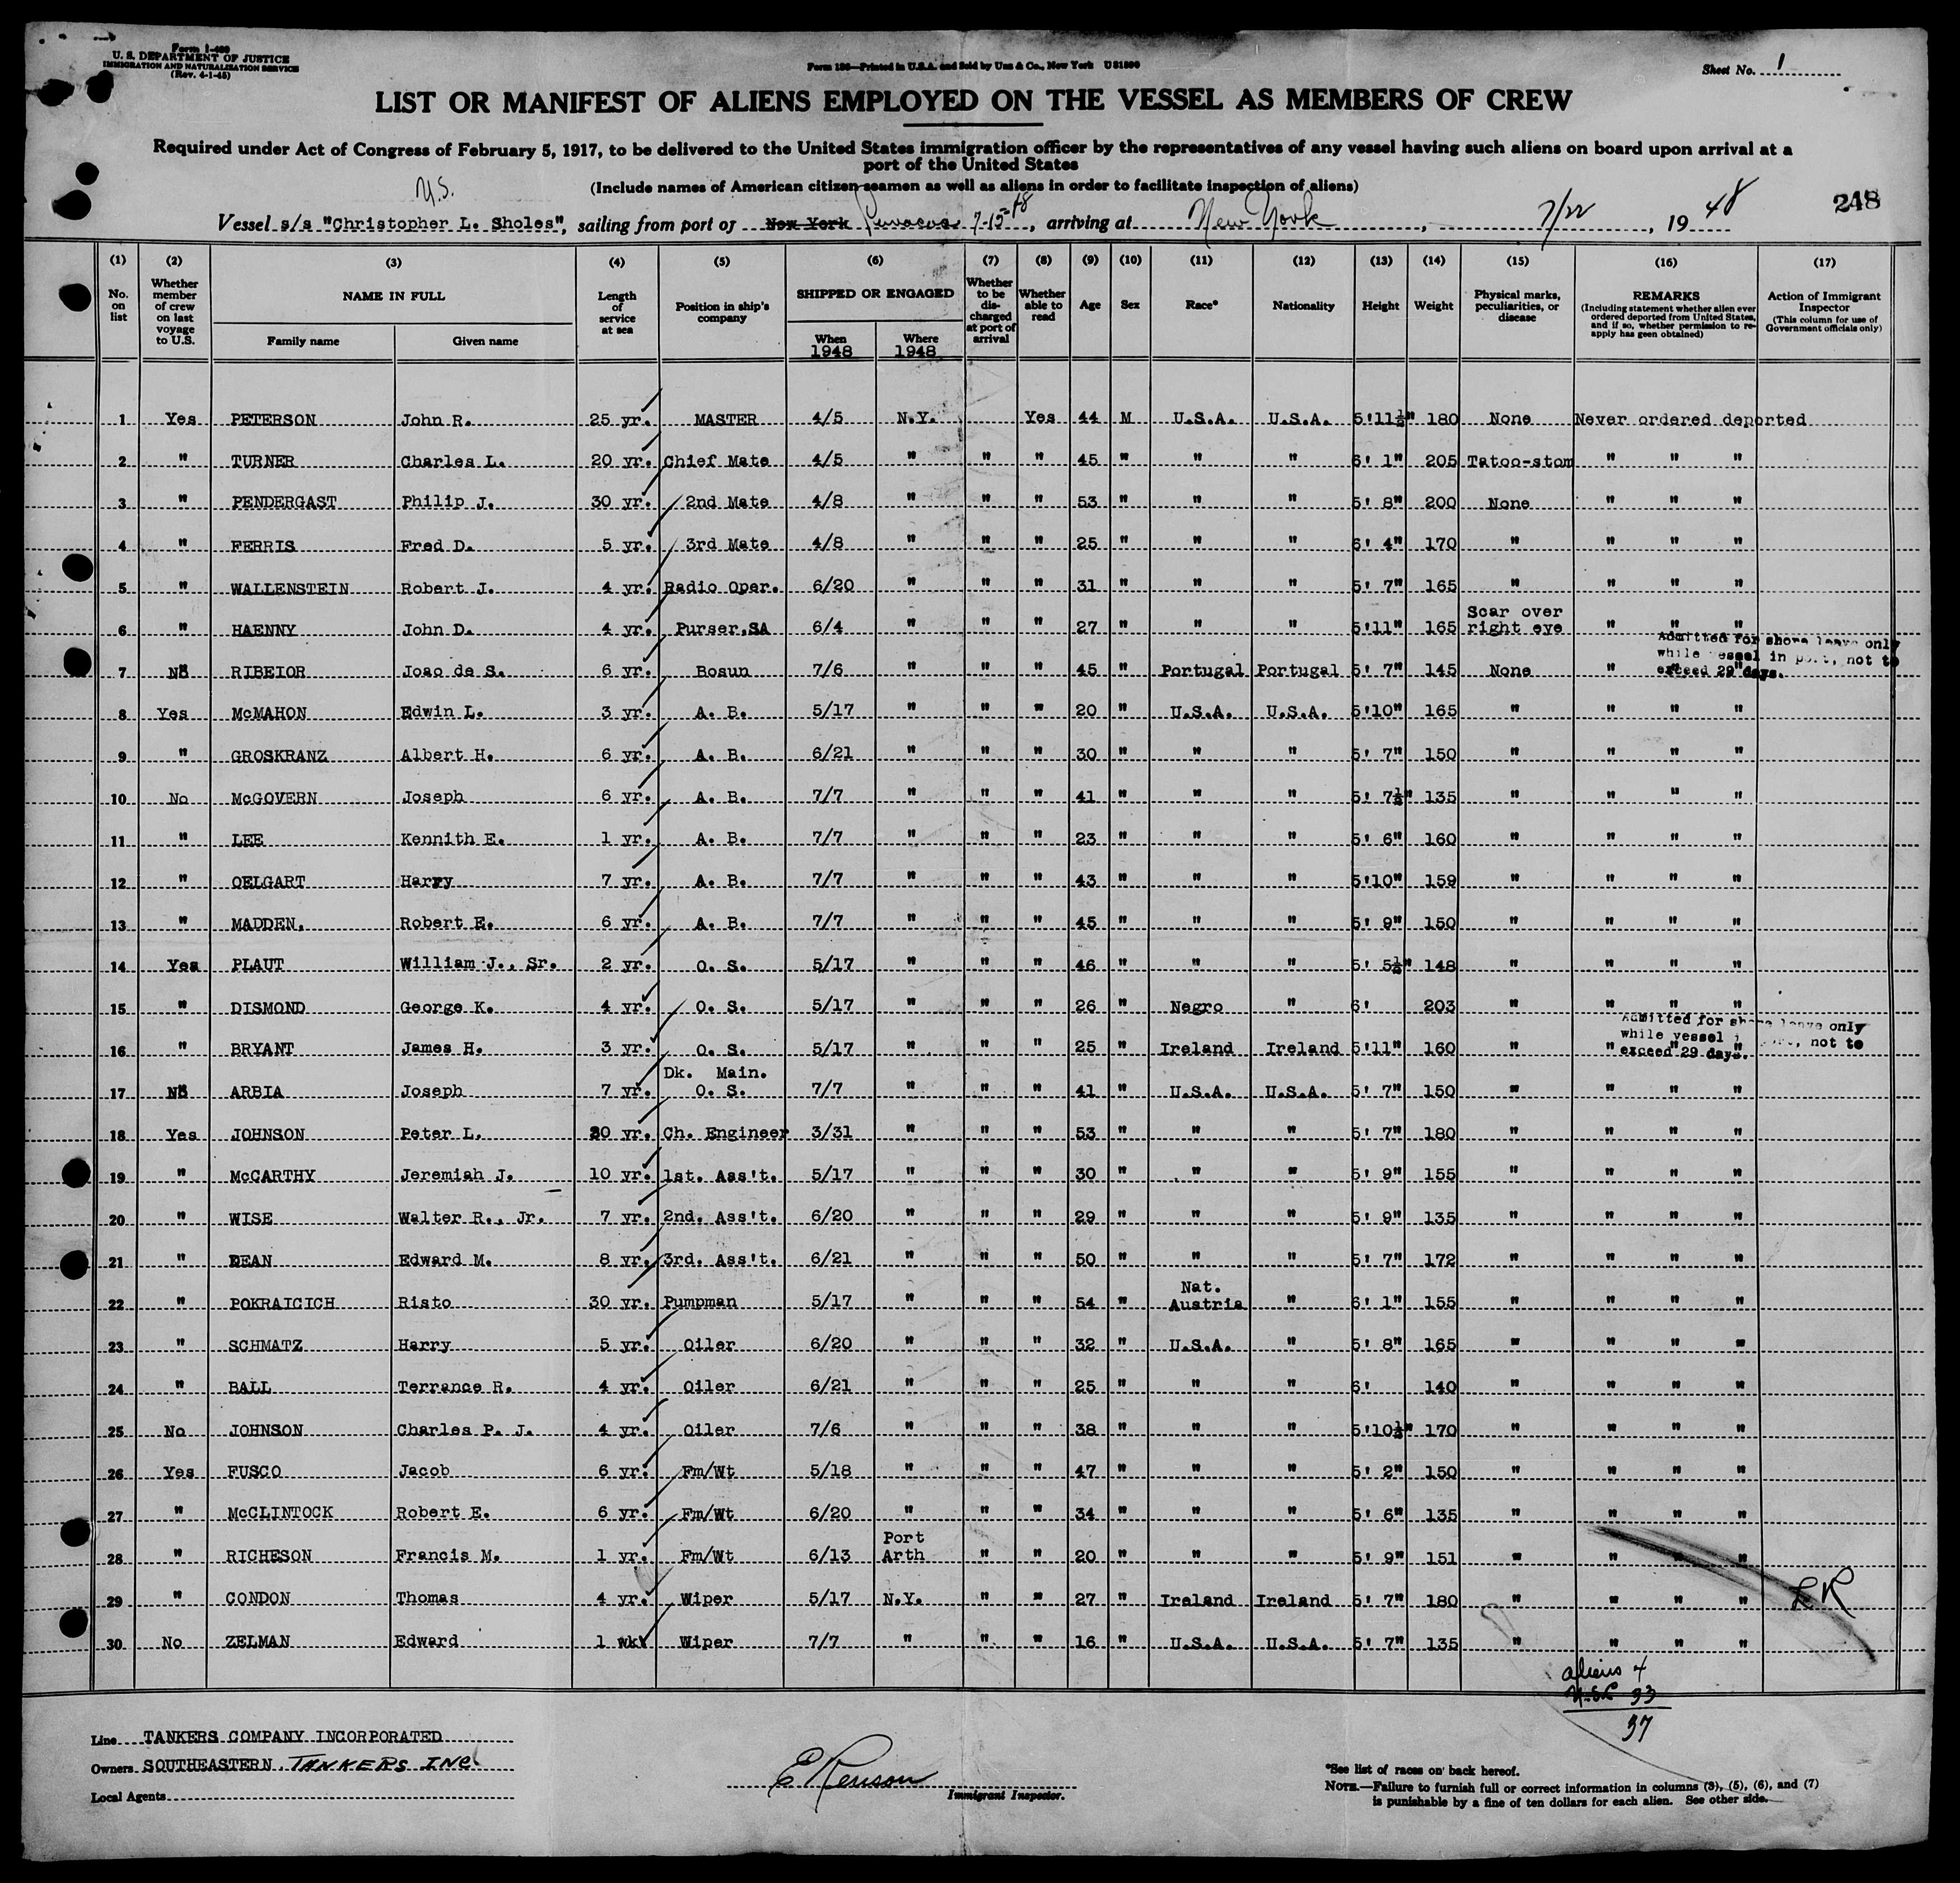 Form I-480
U. S. DEPARTMENT OF JUSTICE
IMMIGRATION AND NATURALIZATION SERVICE
(Rev. 4-1-45)
Form 180—Printed in U.S.A. and Sold by Unz & Co., New York
Sheet No. 1
LIST OR MANIFEST OF ALIENS EMPLOYED ON THE VESSEL AS MEMBERS OF CREW
Required under Act of Congress of February 5, 1917, to be delivered to the United States immigration officer by the representatives of any vessel having such aliens on board upon arrival at a
port of the United States
(Include names of American citizen seamen as well as aliens in order to facilitate inspection of aliens)
U.S.
248
Vessel s/s "Christopher L. Sholes", sailing from port of New York 7-15-48, arriving at New York, 7/22, 1948
(1) (2) (3) (4) (5) (6) (7) (8) (9) (10) (11) (12) (13) (14) (15) (16) (17)
No. on list
Whether member of crew on last voyage to U.S.
NAME IN FULL
Family name
Given name
Length of service at sea
Position in ship's company
SHIPPED OR ENGAGED
When 1948
Where 1948
Whether to be discharged at port of arrival
Whether able to read
Age
Sex
Race*
Nationality
Height
Weight
Physical marks, peculiarities, or disease
REMARKS
(Including statement whether alien ever ordered deported from United States, and if so, whether permission to re-apply has geen obtained)
Action of Immigrant Inspector
(This column for use of Government officials only)
1 Yes PETERSON John R. 25 yr. MASTER 4/5 N.Y. Yes 44 M U.S.A. U.S.A. 5'11½" 180 None Never ordered deported
2 " TURNER Charles L. 20 yr. Chief Mate 4/5 " " " 45 " " " 6' 1" 205 Tatoo-stom " " "
3 " PENDERGAST Philip J. 30 yr. 2nd Mate 4/8 " " " 53 " " " 5' 8" 200 None " " "
4 " FERRIS Fred D. 5 yr. 3rd Mate 4/8 " " " 25 " " " 6' 4" 170 " " " "
5 " WALLENSTEIN Robert J. 4 yr. Radio Oper. 6/20 " " " 31 " " " 5' 7" 165 " " " "
6 " HAENNY John D. 4 yr. Purser,SA 6/4 " " " 27 " " " 5'11" 165 Scar over right eye " " "
Admitted for shore leave only while vessel in port, not to exceed 29 days.
7 No RIBEIOR Joao de S. 6 yr. Bosun 7/6 " " " 45 " Portugal Portugal 5' 7" 145 None " " "
8 Yes McMAHON Edwin L. 3 yr. A. B. 5/17 " " " 20 " U.S.A. U.S.A. 5'10" 165 " " " "
9 " GROSKRANZ Albert H. 6 yr. A. B. 6/21 " " " 30 " " " 5' 7" 150 " " " "
10 No McGOVERN Joseph 6 yr. A. B. 7/7 " " " 41 " " " 5' 7½" 135 " " " "
11 " LEE Kennith E. 1 yr. A. B. 7/7 " " " 23 " " " 5' 6" 160 " " " "
12 " OELGART Harry 7 yr. A. B. 7/7 " " " 43 " " " 5'10" 159 " " " "
13 " MADDEN. Robert E. 6 yr. A. B. 7/7 " " " 45 " " " 5' 9" 150 " " " "
14 Yes PLAUT William J., Sr. 2 yr. O. S. 5/17 " " " 46 " " " 5' 5½" 148 " " " "
15 " DISMOND George K. 4 yr. O. S. 5/17 " " " 26 " Negro " 6' 203 " " " "
Admitted for shore leave only while vessel in port, not to exceed 29 days.
16 " BRYANT James H. 3 yr. O. S. 5/17 " " " 25 " Ireland Ireland 5'11" 160 " " " "
17 No ARBIA Joseph 7 yr. Dk. Main. O. S. 7/7 " " " 41 " U.S.A. U.S.A. 5' 7" 150 " " " "
18 Yes JOHNSON Peter L. 30 yr. Ch. Engineer 3/31 " " " 53 " " " 5' 7" 180 " " " "
19 " McCARTHY Jeremiah J. 10 yr. 1st. Ass't. 5/17 " " " 30 " " " 5' 9" 155 " " " "
20 " WISE Walter R., Jr. 7 yr. 2nd. Ass't. 6/20 " " " 29 " " " 5' 9" 135 " " " "
21 " DEAN Edward M. 8 yr. 3rd. Ass't. 6/21 " " " 50 " " " 5' 7" 172 " " " "
22 " POKRAICICH Risto 30 yr. Pumpman 5/17 " " " 54 " Nat. Austria " 6' 1" 155 " " " "
23 " SCHMATZ Harry 5 yr. Oiler 6/20 " " " 32 " U.S.A. " 5' 8" 165 " " " "
24 " BALL Terrance R. 4 yr. Oiler 6/21 " " " 25 " " " 6' 140 " " " "
25 No JOHNSON Charles P. J. 4 yr. Oiler 7/6 " " " 38 " " " 5'10½" 170 " " " "
26 Yes FUSCO Jacob 6 yr. Fm/Wt 5/18 " " " 47 " " " 5' 2" 150 " " " "
27 " McCLINTOCK Robert E. 6 yr. Fm/Wt 6/20 " " " 34 " " " 5' 6" 135 " " " "
28 " RICHESON Francis M. 1 yr. Fm/Wt 6/13 Port Arth " " 20 " " " 5' 9" 151 " " " "
29 " CONDON Thomas 4 yr. Wiper 5/17 N.Y. " " 27 " Ireland Ireland 5' 7" 180 " " " "
30 No ZELMAN Edward 1 wk Wiper 7/7 " " " 16 " U.S.A. U.S.A. 5' 7" 135 " " " "
aliens 4
U.S.C 33
37
Line TANKERS COMPANY INCORPORATED
Owners SOUTHEASTERN TANKERS INC.
Local Agents
Immigrant Inspector.
*See list of races on back hereof.
NOTE.—Failure to furnish full or correct information in columns (3), (5), (6), and (7)
is punishable by a fine of ten dollars for each alien. See other side.